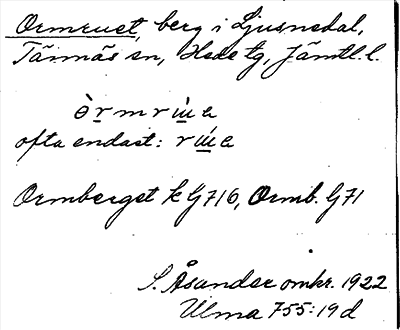 Ormruet, berg i Ljusnedal,
Tännäs sn, Hede tg, Jämtl. l.
òr̲mrɯ́a
ofta endast: rɯ́a
Ormberget k G716, Ormb. G71
S. Åsander omkr. 1922
Ulma 755:19d